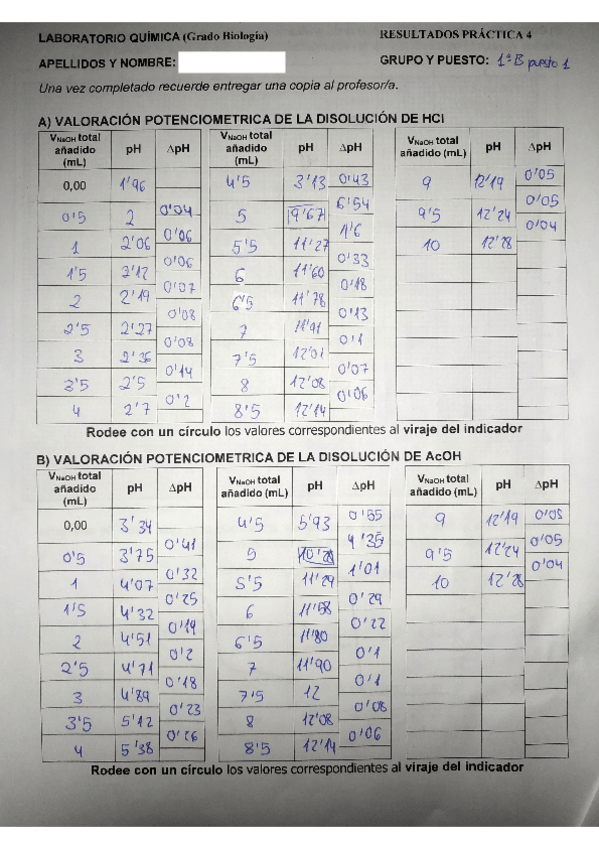 LABORATORIO QUÍMICA (Grado Biología) RESULTADOS PRÁCTICA 4
APELLIDOS Y NOMBRE: GRUPO Y PUESTO: 1ºB puesto 1
Una vez completado recuerde entregar una copia al profesor/a.
A) VALORACIÓN POTENCIOMETRICA DE LA DISOLUCIÓN DE HCl
VNaOH total añadido (mL) pH ΔpH VNaOH total añadido (mL) pH ΔpH VNaOH total añadido (mL) pH ΔpH
0,00 1'96 4'5 3'13 0'43 9 12'19 0'05
0'5 2 0'04 5 9'67 6'54 9'5 12'24 0'05
1 2'06 0'06 5'5 11'27 1'6 10 12'28 0'04
1'5 2'12 0'06 6 11'60 0'33
2 2'19 0'07 6'5 11'78 0'18
2'5 2'27 0'08 7 11'91 0'13
3 2'36 0'08 7'5 12'01 0'1
3'5 2'5 0'14 8 12'08 0'07
4 2'7 0'2 8'5 12'14 0'06
Rodee con un círculo los valores correspondientes al viraje del indicador
B) VALORACIÓN POTENCIOMETRICA DE LA DISOLUCIÓN DE AcOH
VNaOH total añadido (mL) pH ΔpH VNaOH total añadido (mL) pH ΔpH VNaOH total añadido (mL) pH ΔpH
0,00 3'34 4'5 5'93 0'55 9 12'19 0'05
0'5 3'75 0'41 5 10'28 4'35 9'5 12'24 0'05
1 4'07 0'32 5'5 11'29 1'01 10 12'28 0'04
1'5 4'32 0'25 6 11'58 0'29
2 4'51 0'19 6'5 11'80 0'22
2'5 4'71 0'2 7 11'90 0'1
3 4'89 0'18 7'5 12 0'1
3'5 5'12 0'23 8 12'08 0'08
4 5'38 0'26 8'5 12'14 0'06
Rodee con un círculo los valores correspondientes al viraje del indicador